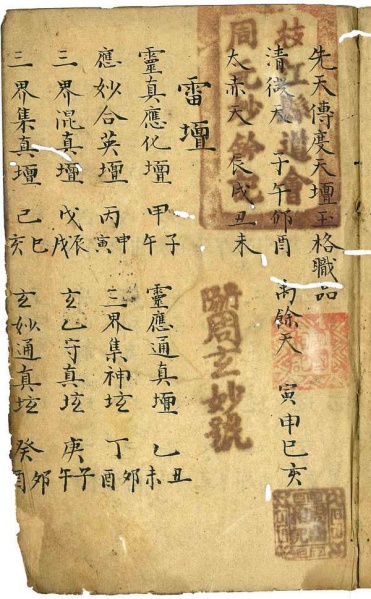 先天傳度天壇玉格職品
清微天 子午卯酉 禹餘天 寅申巳亥
太赤天 辰戌丑未
雷壇
靈真應化壇 甲子午 靈應通真壇 乙丑未
應妙合英壇 丙申寅 三界集神壇 丁卯酉
三界混真壇 戊辰戌 玄乙守真壇 庚子午
三界集真壇 己巳亥 玄妙通真壇 癸卯酉
枝江縣道會
同
鈐記
周玄妙號